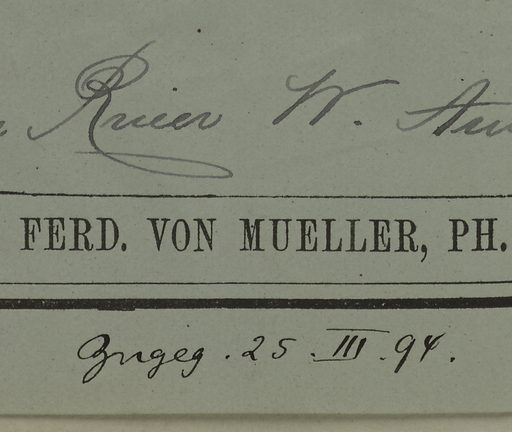 River W. Au
FERD. VON MUELLER, PH.
Zugeg. 25. III. 94.